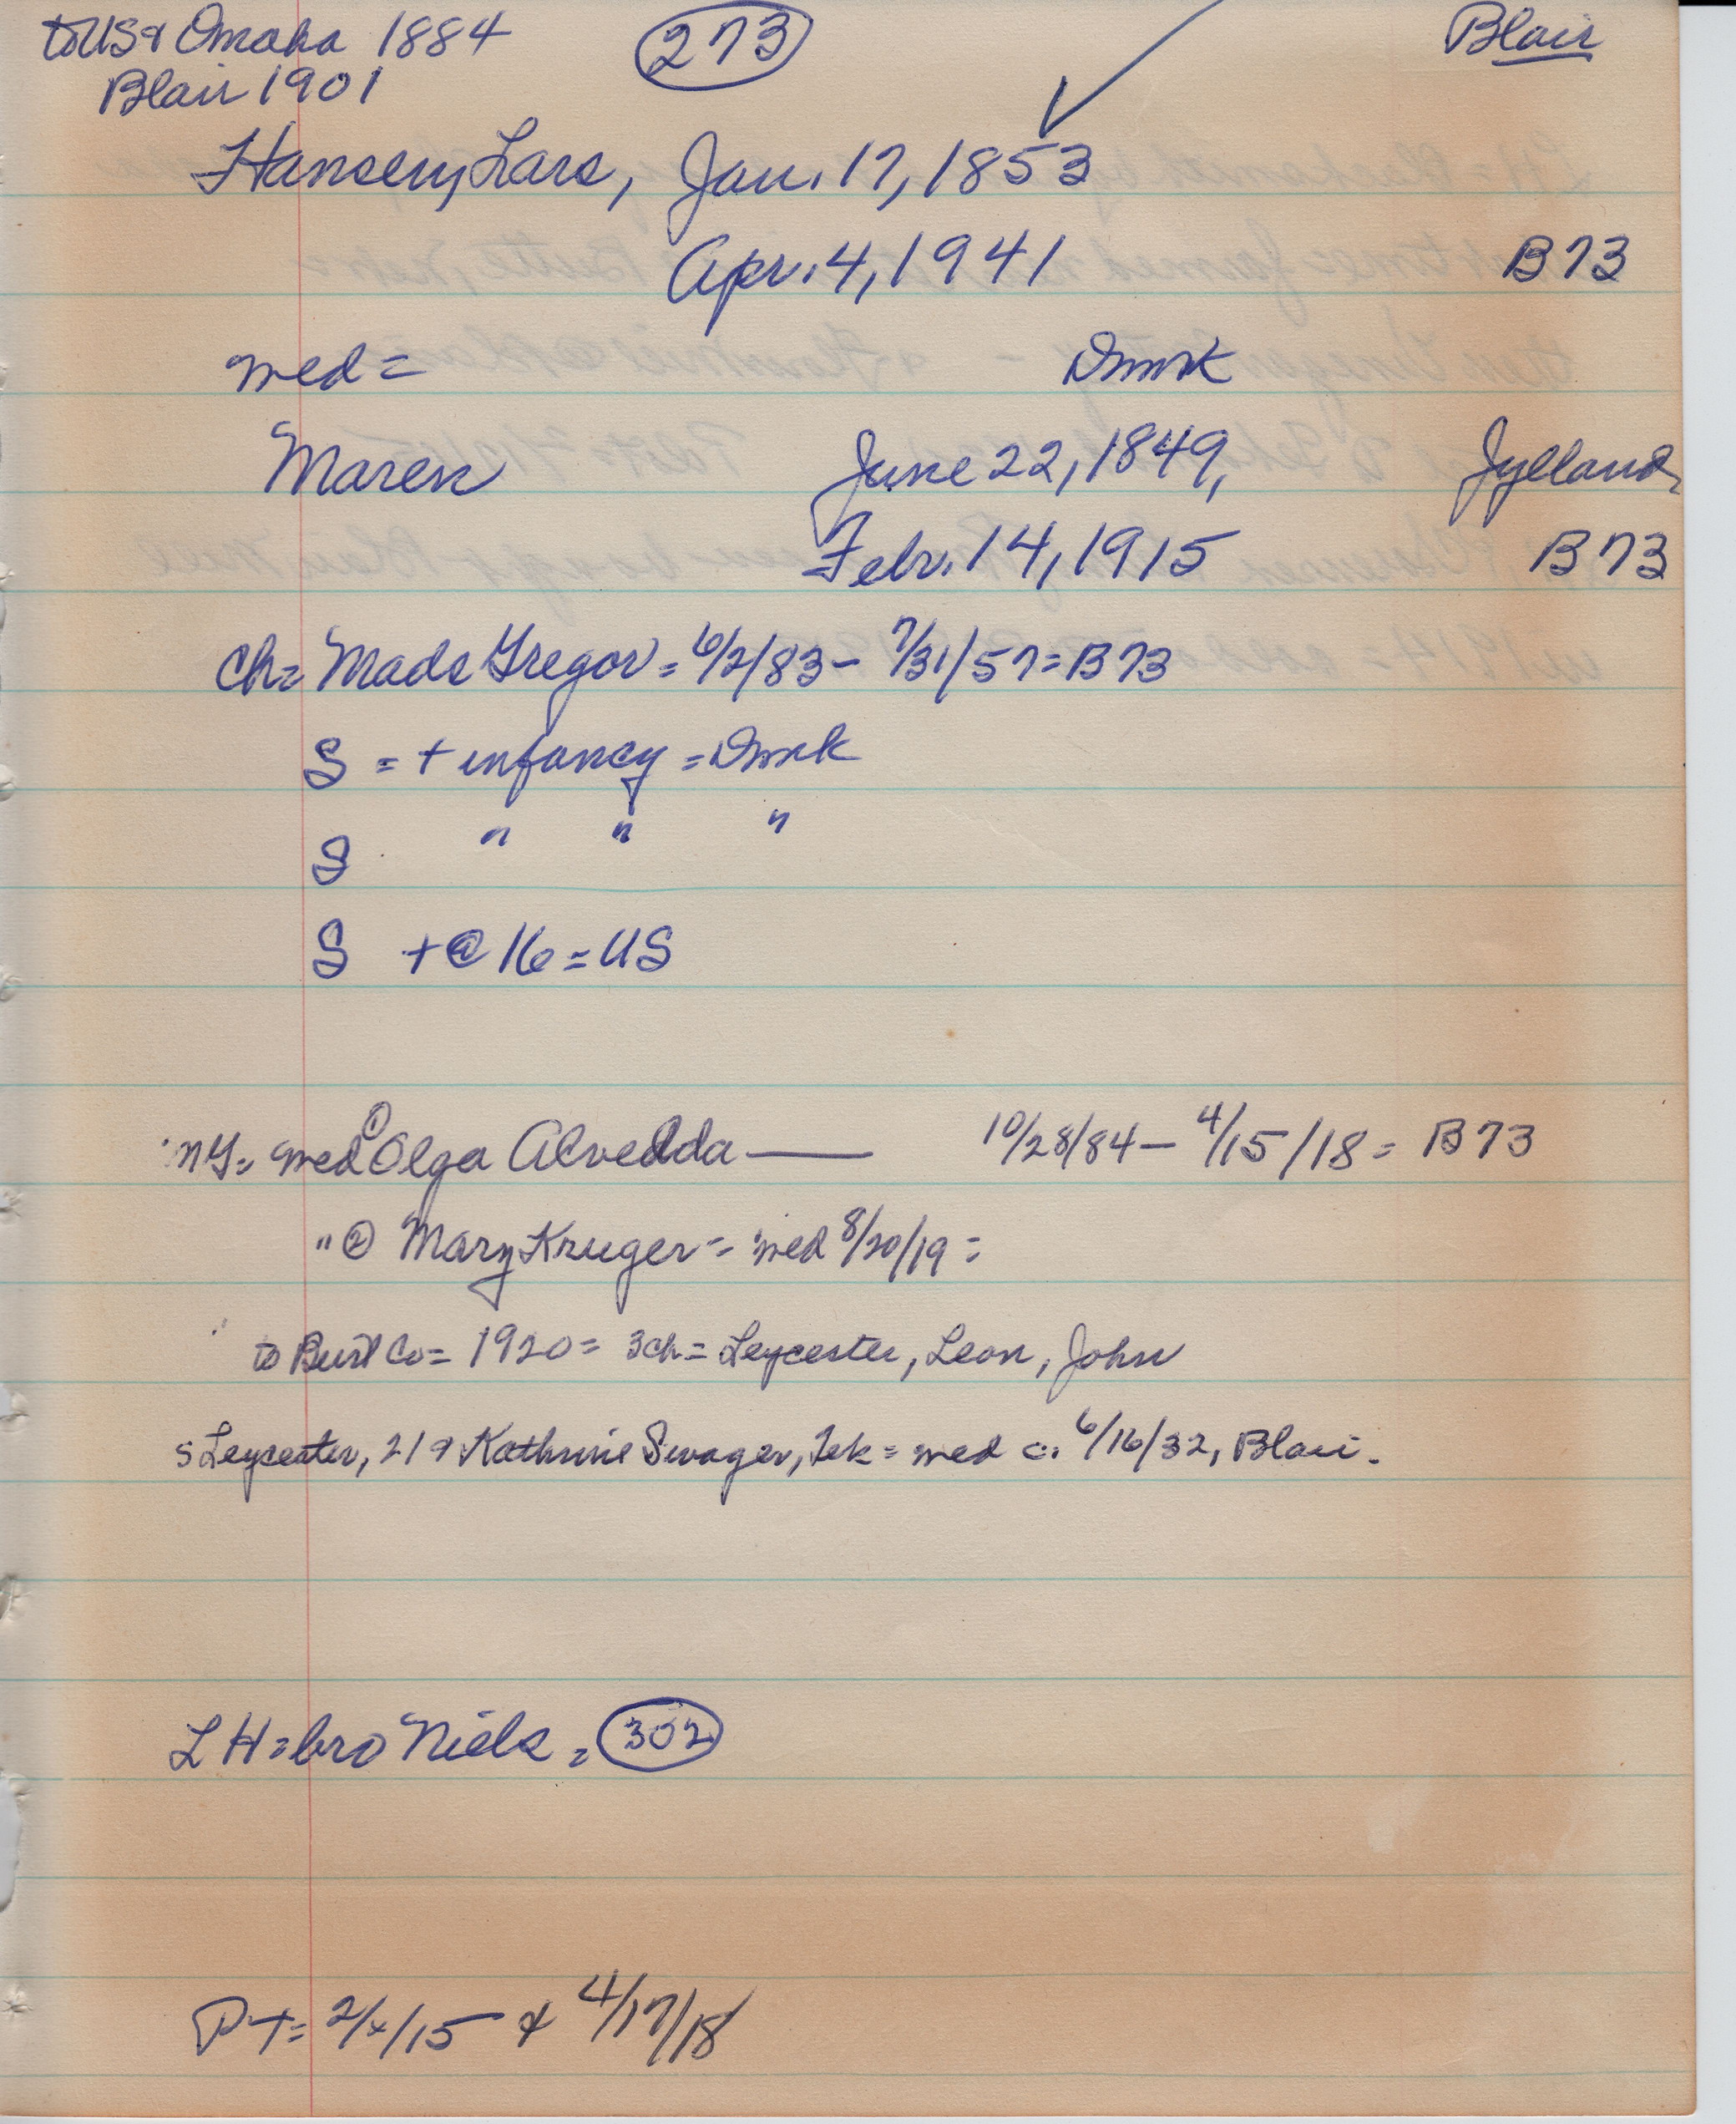 to US & Omaha 1884 273 Blair
Blair 1901
Hansen, Lars, Jan. 17, 1853
Apr. 4, 1941 B73
med = Dmrk
Maren June 22, 1849, Jylland,
Febr. 14, 1915 B73
Ch = Mads Gregor = 6/2/83 - 7/31/57 = B73
S = + infancy = Dmrk
S " " "
S + @ 16 = US
MG = med ① Olga Alvedda — 10/28/84 - 4/15/18 = B73
" ② Mary Kruger = med 8/20/19 =
to Burt Co = 1920 = 3 ch = Leycester, Leon, John
S Leycester, 21 & Kathrine Swager, Tek = med c. 6/16/32, Blair.
LH = bro Niels = 302
PT = 2/x/15 & 4/17/18